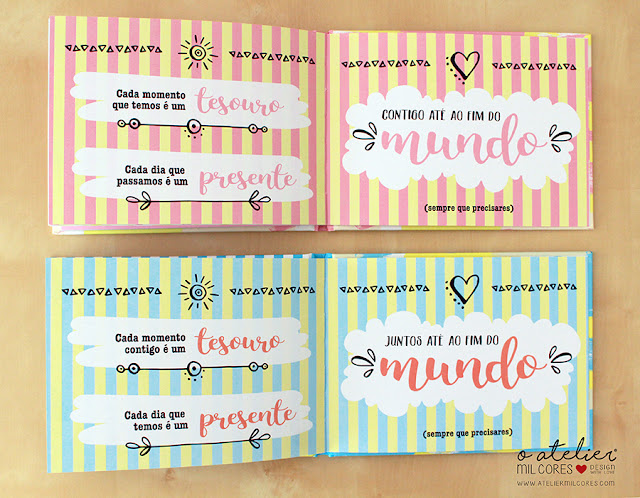 Cada momento
que temos é um tesouro
Cada dia que
passamos é um presente
CONTIGO ATÉ AO FIM DO
mundo
(sempre que precisares)
Cada momento
contigo é um tesouro
Cada dia que
temos é um presente
JUNTOS ATÉ AO FIM DO
mundo
(sempre que precisares)
o atelier
MIL CORES DESIGN
WITH LOVE
WWW.ATELIERMILCORES.COM